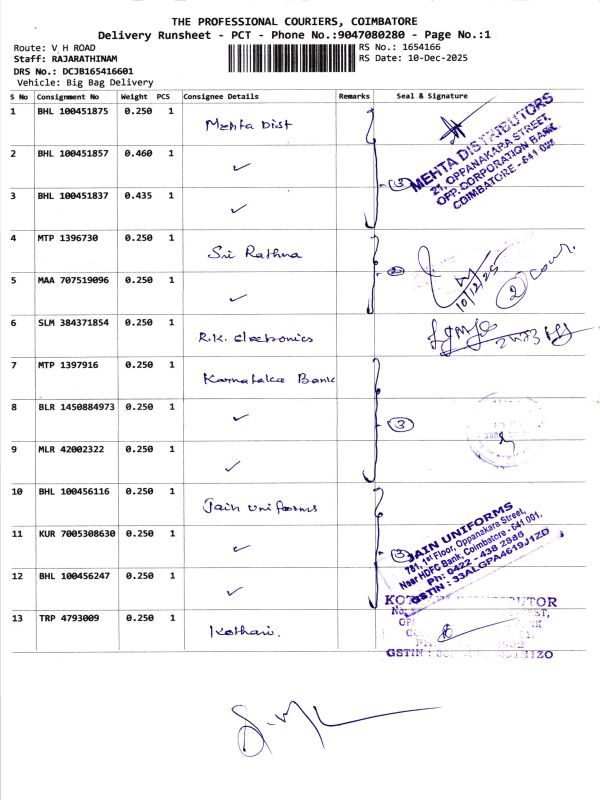 THE PROFESSIONAL COURIERS, COIMBATORE
Delivery Runsheet - PCT - Phone No.:9047080280 - Page No.:1
Route: V H ROAD
Staff: RAJARATHINAM
DRS No.: DCJB165416601
Vehicle: Big Bag Delivery
RS No.: 1654166
RS Date: 10-Dec-2025
S No Consignment No Weight PCS Consignee Details Remarks Seal & Signature
1 BHL 100451875 0.250 1 Mehta Dist
2 BHL 100451857 0.460 1 ✓
3 BHL 100451837 0.435 1 ✓
(3)
MEHTA DISTRIBUTORS
21, OPPANAKARA STREET,
OPP. CORPORATION BANK
COIMBATORE - 641 001
4 MTP 1396730 0.250 1 Sri Rathna
5 MAA 707519096 0.250 1 ✓
(2)
10/12/25
(2) Cour.
6 SLM 384371854 0.250 1 R.K. Electronics
7 MTP 1397916 0.250 1 Karnataka Bank
8 BLR 1450884973 0.250 1 ✓
9 MLR 42002322 0.250 1 ✓
(3)
10 BHL 100456116 0.250 1 Jain Uniforms
11 KUR 7005308630 0.250 1 ✓
12 BHL 100456247 0.250 1 ✓
(3)
JAIN UNIFORMS
781, 1st Floor, Oppanakara Street,
Near HDFC Bank, Coimbatore - 641 001.
Ph: 0422 - 438 2986
GSTIN : 33ALGPA4619J1ZD
13 TRP 4793009 0.250 1 Kothari.
GSTIN :